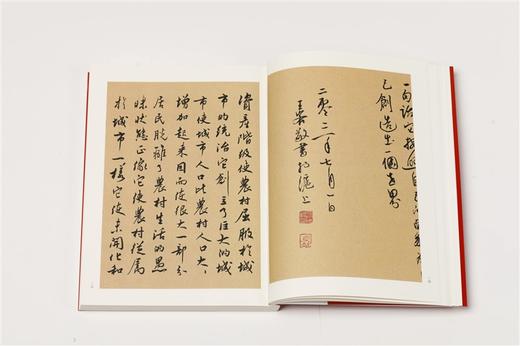 一句話它按照自己的面貌為自
己創造出一個世界
二零二一年七月一日
書於滬上
資產階級使農村屈服於城
市的統治它創立了巨大的城
市使城市人口比農村人口大、
增加起來因而使很大一部分
居民脫離了農村生活的愚
昧狀態正像它使農村從屬
於城市一樣它使未開化和